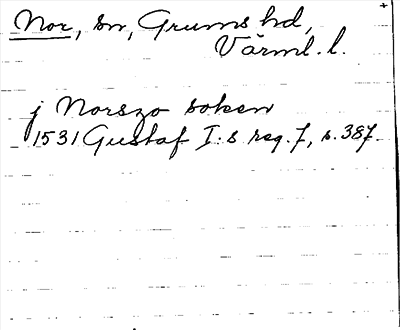 Nor, sn, Grums hd,
Värml. l.
j Norszo soken
1531 Gustaf I:s reg. 7, s. 387.